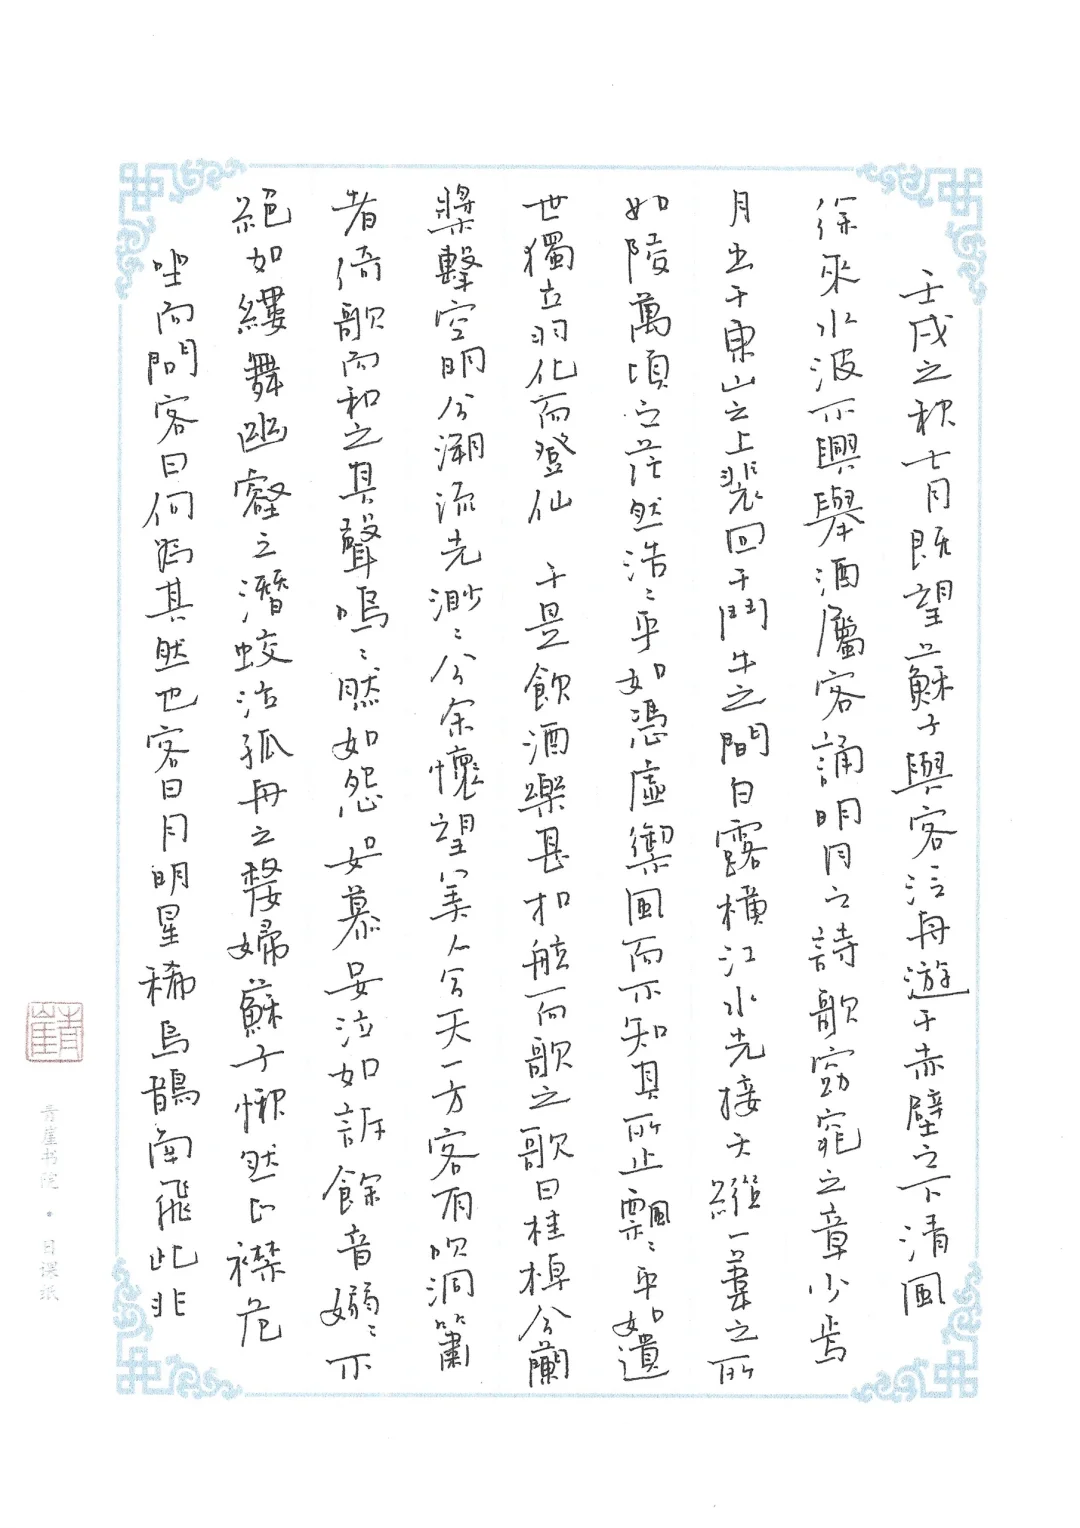 壬戌之秋七月既望蘇子與客泛舟遊于赤壁之下清風
徐來水波不興舉酒屬客誦明月之詩歌窈窕之章少焉
月出于東山之上裴回于鬥牛之間白露橫江水光接天縱一葦之所
如陵萬頃之茫然浩〻乎如馮虛禦風而不知其所止飄〻乎如遺
世獨立羽化而登仙 于是飲酒樂甚扣舷而歌之歌曰桂棹兮蘭
槳擊空明兮溯流光渺〻兮余懷望美人兮天一方客有吹洞簫
者倚歌而和之其聲嗚〻然如怨如慕如泣如訴餘音嫋〻不
絕如縷舞幽壑之潛蛟泣孤舟之嫠婦蘇子愀然正襟危
坐而問客曰何為其然也客曰月明星稀烏鵲南飛此非
青崖
青崖书院·日课纸